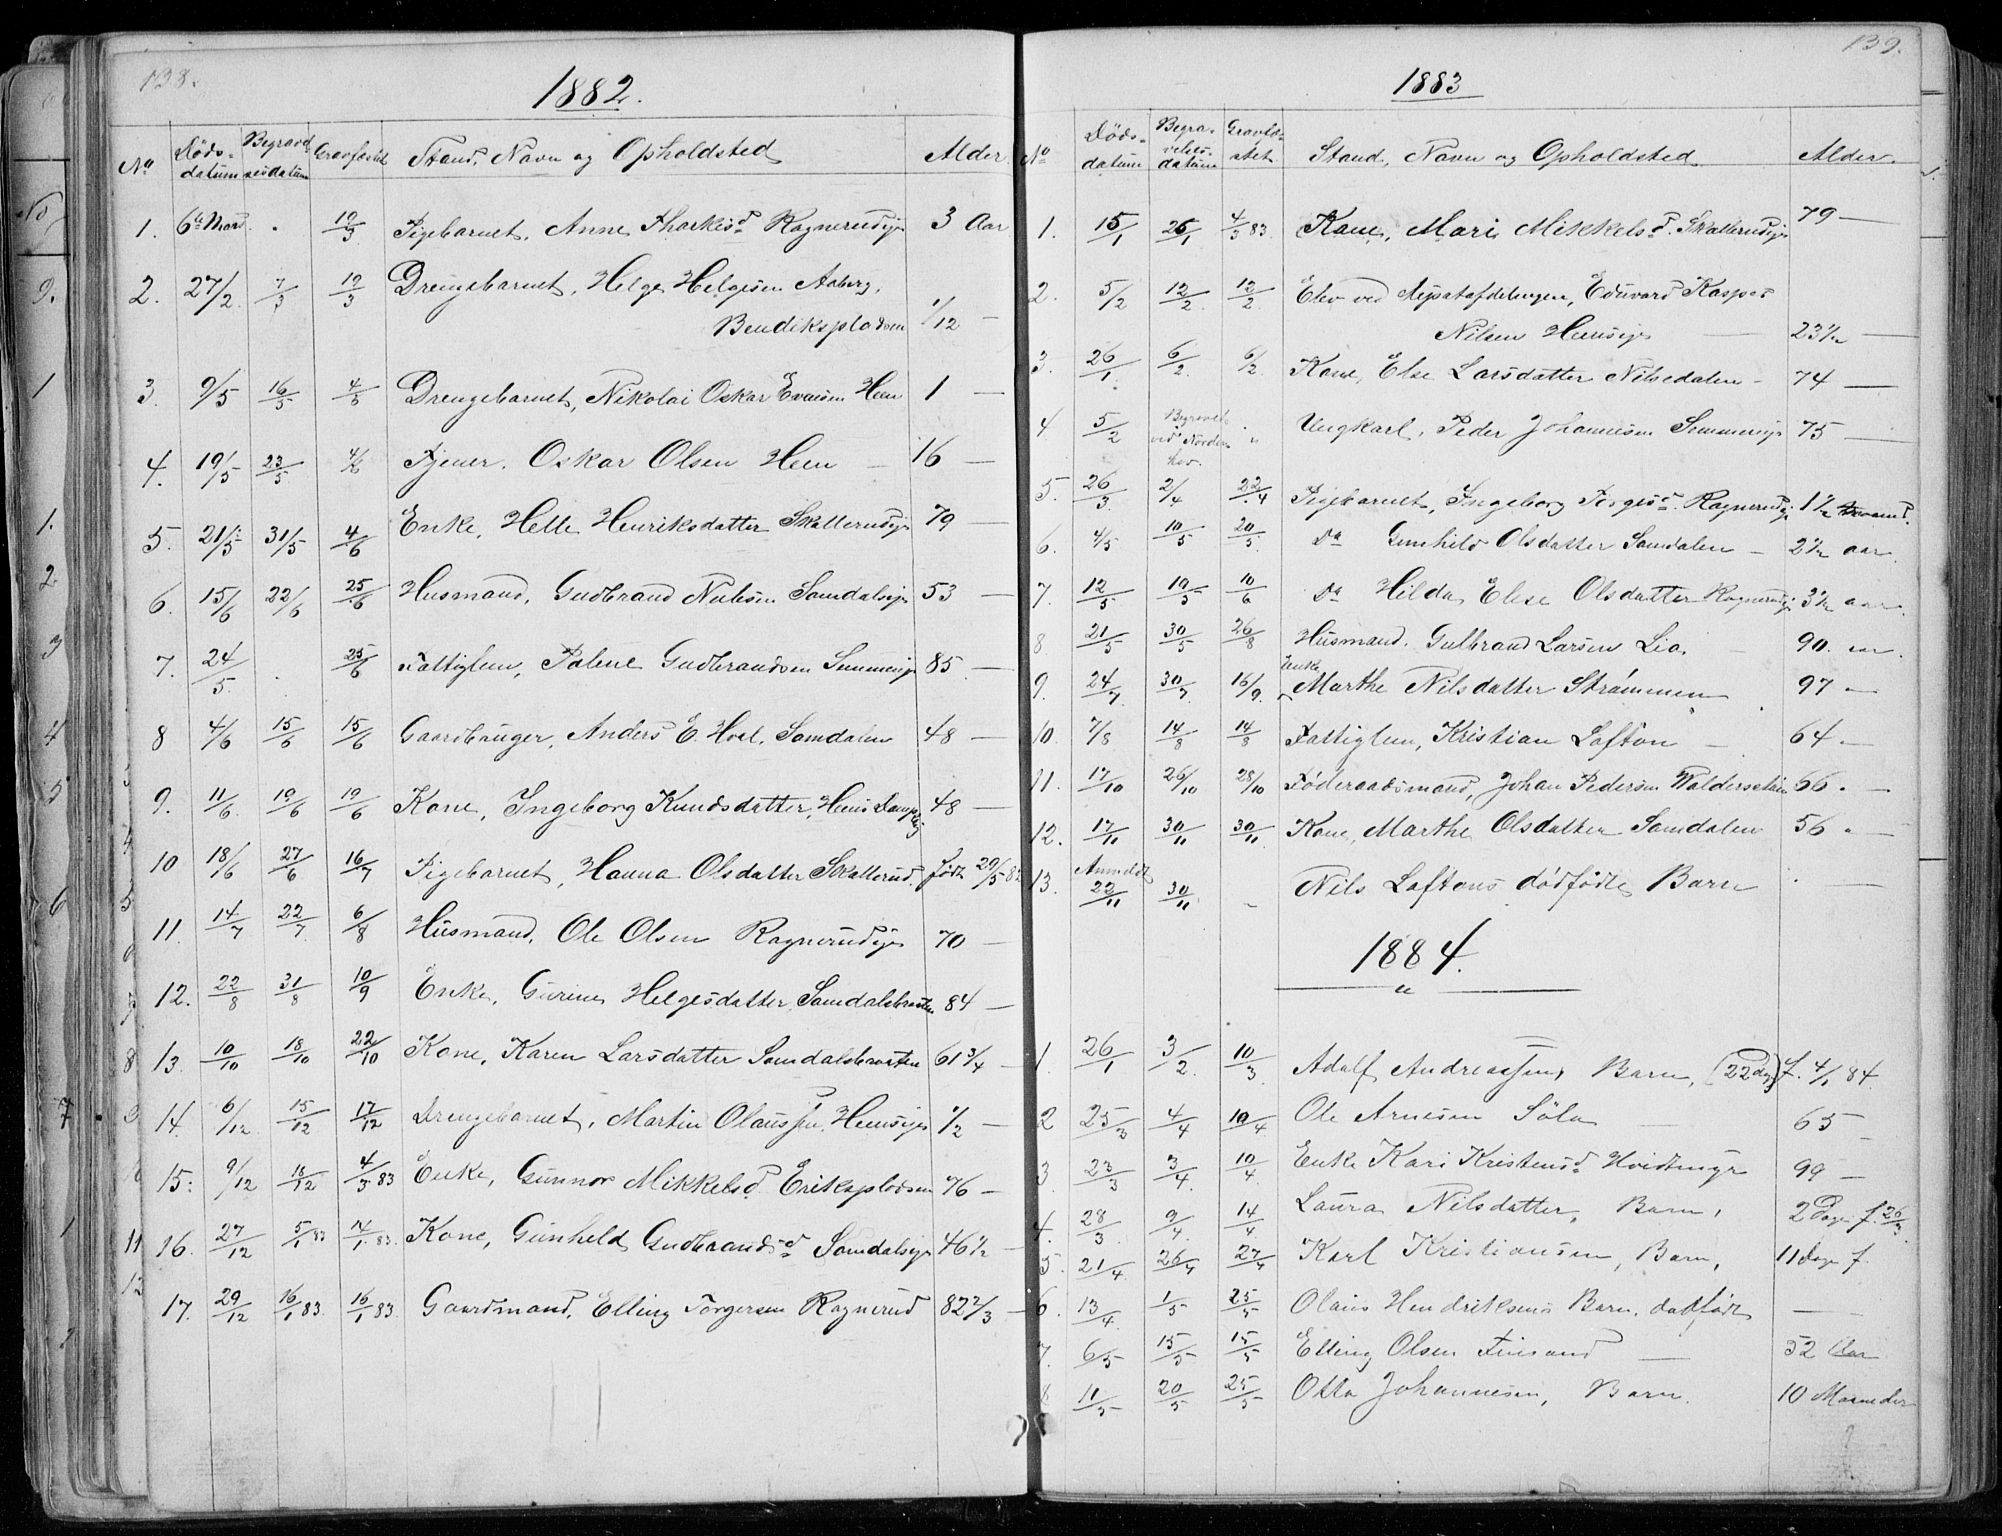 138.
1882.
No Døds- datum Begravel- sesdatum Gravfæstet Stand, Navn og Opholdsted Alder
1. 6te Mars . 19/3 Pigebarnet, Anne Tharkisd Ragnerudeje 3 Aar
2. 27/2 7/3 19/3 Drengebarnet, Helge Helgesen Aaberg,
Bendiksplassen 1/12 —
3. 9/5 16/5 4/6 Drengebarnet, Nikolai Oskar Evensen Heen 1 —
4. 19/5 23/5 4/6 Tjener. Oskar Olsen Heen — 16 —
5. 21/5 31/5 4/6 Enke, Helle Henriksdatter Skallerudeje 79 —
6. 15/6 22/6 25/6 Husmand, Gudbrand Nilsen Samdalseje 53 —
7. 24/5 . 25/6 Fattiglem, Gudbrandsen 85 —
8 4/6 15/6 15/6 Gaardbruger, Anders E. Hval, Samdalen 48 —
9. 11/6 19/6 19/6 Kone, Ingeborg Knudsdatter, Hens 48 —
10 18/6 27/6 16/7 Pigebarnet, Hanna Olsdatter Skallerud. født 29/5 82
11. 14/7 22/7 6/8 Husmand, Ole Olsen Ragnerudeje 70 —
12. 22/8 31/8 10/9 Enke, Gurine Helgesdatter, Samdalsbraaten 84 —
13. 10/10 18/10 22/10 Kone, Karen Larsdatter Samdalsbraaten 61 3/4 —
14. 6/12 15/12 17/12 Drengebarnet, Martin Olaussen, Henseje 1/2 —
15. 9/12 18/12 4/3 83 Enke, Gunnor Mikkelsd. Eriksplassen 76 —
16. 27/12 5/1 83 14/1 83. Kone, Gunhild Gudbrandsd Samdalseje 46 1/2 —
17. 29/12 16/1 83. 16/1 83. Gaardmand, Elling Torgersen Ragnerud 82 2/3 —
139.
1883
No Døds- datum Begra- velses- datum Gravfæ- stet Stand, Navn og Opholdsted Alder
1. 15/1 26/1 4/3 83. Kone, Mari Mikkelsd. Skallerudeje 79 —
2. 5/2 12/2 12/2 Elev ved Eduvard Kasper
Nilsen Henseje — 23 1/2 —
3. 26/1 6/2 6/2 Kone, Else Larsdatter Nilsedalen - 74 —
4 5/2 Begravet ved Norder- hov. " Ungkarl, Peder Johannesen 75 —
5. 26/3 2/4 22/4 Pigebarnet, Ingeborg Torgesd. Ragnerudeje 1 1/2
6. 4/5 10/5 20/5 Do Gunhild Olsdatter Samdalen — 2 1/2 aar
7. 12/5 19/5 10/6 Do Hilda Elise Olsdatter Ragnerudeje 3 1/2 aar.
8 21/5 30/5 26/8 Husmand. Gulbrand Larsen Lia — 90. aar.
9. 24/7 30/7 16/9 Enke Marthe Nilsdatter Strømmen 97 —
10. 7/8 14/8 14/8 Fattiglem, Kristian Lofton — 64 —
11. 17/10 26/10 28/10 Føderaadsmand, Johan Pedersen 66. —
12. 17/11 30/11 30/11 Kone, Marthe Olsdatter Samdalen 56 " —
13. Anmeldt 22/11 30/11 " Nils Loftons dødfødte Barn . —
1884.
1. 26/1 3/2 10/3 Adolf Andreassens Barn, (22 dage) f. 4/1 84.
2 25/3 4/4 10/4 Ole Arnesen — 65
3 23/3 3/4 10/4 Enke Kari Kristensd Hvidtmyr 99 —
4. 28/3 9/4 14/4 Laura Nilsdatter, Barn, 2 Dage f. 26/3
5. 21/4 26/4 27/4 Karl Kristiansen, Barn, 11 Dage f.
6. 13/4 1/5 25/5 Olaus Hendriksens Barn, dødfødt —
7. 6/5 15/5 15/5 Elling Olsen Finsand — 52 Aar
8 11/5 20/5 25/5 Otto Johannesen, Barn. 10 Maaneder